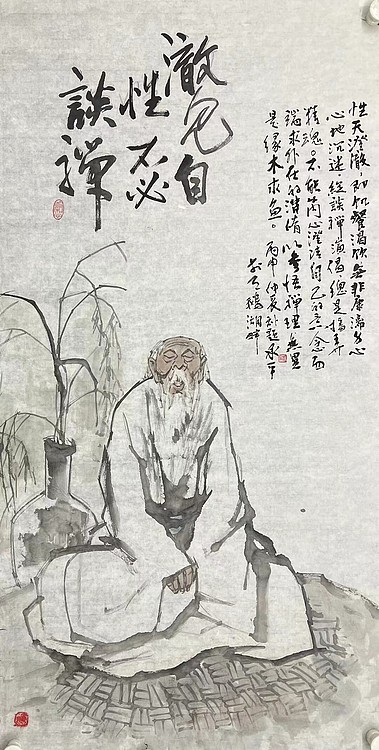 澈見自
性不必
談禪
性天澄澈,即饥餐渴飲無非康濟身心
心地沉迷縱談禪演偈,總是播弄
精魂。不能內心澄清自己的意念而
求外在的澄清以參悟禪理無異
是緣木求魚。丙申仲夏
湖畔